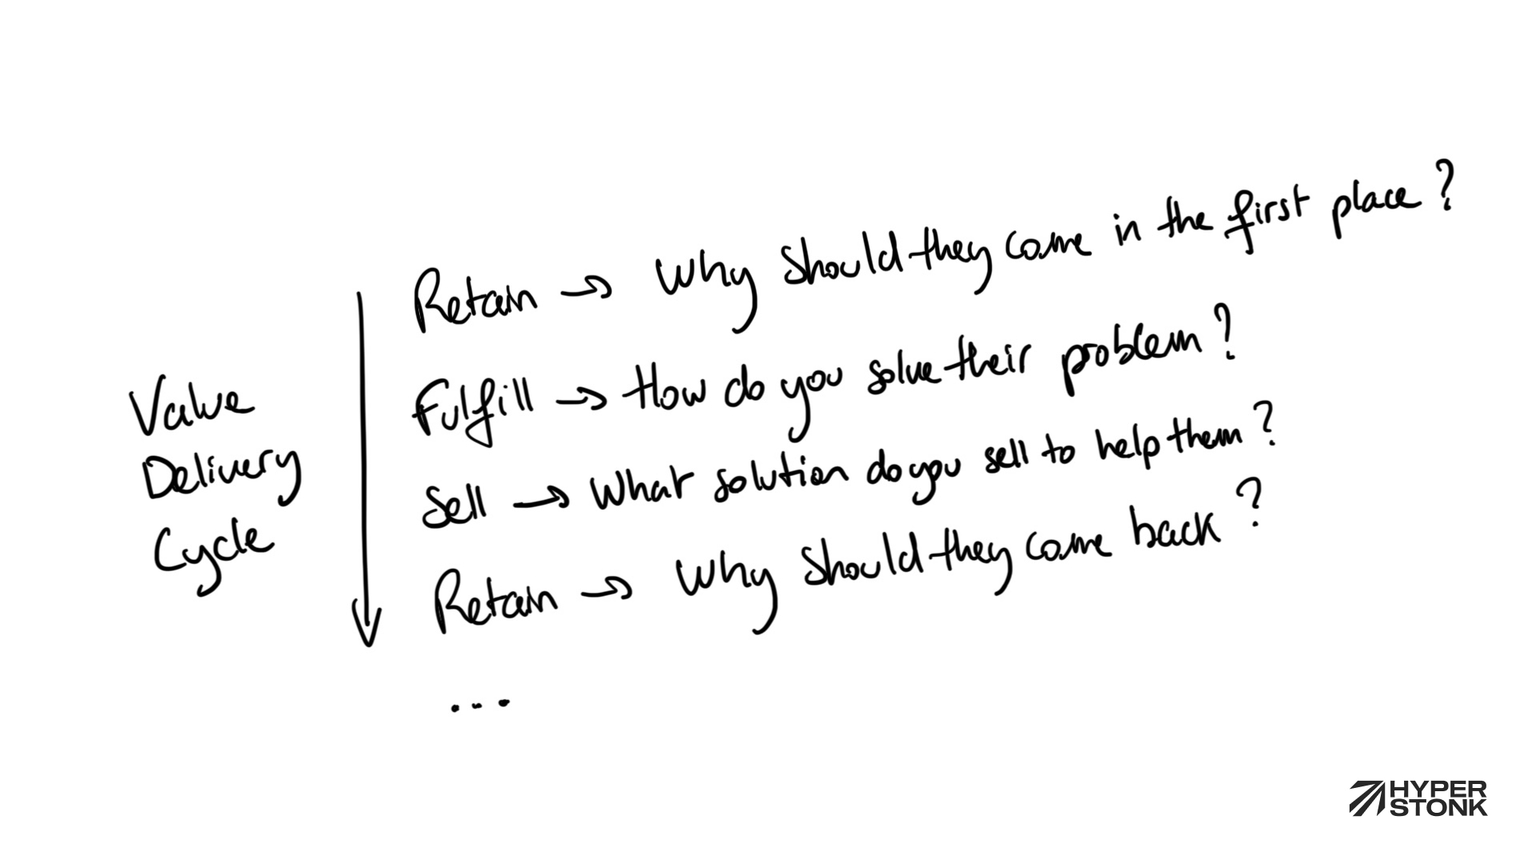 Value
Delivery
Cycle
Retain → Why should they come in the first place?
Fulfill → How do you solve their problem?
Sell → What solution do you sell to help them?
Retain → Why should they come back?
...
HYPER
STONK